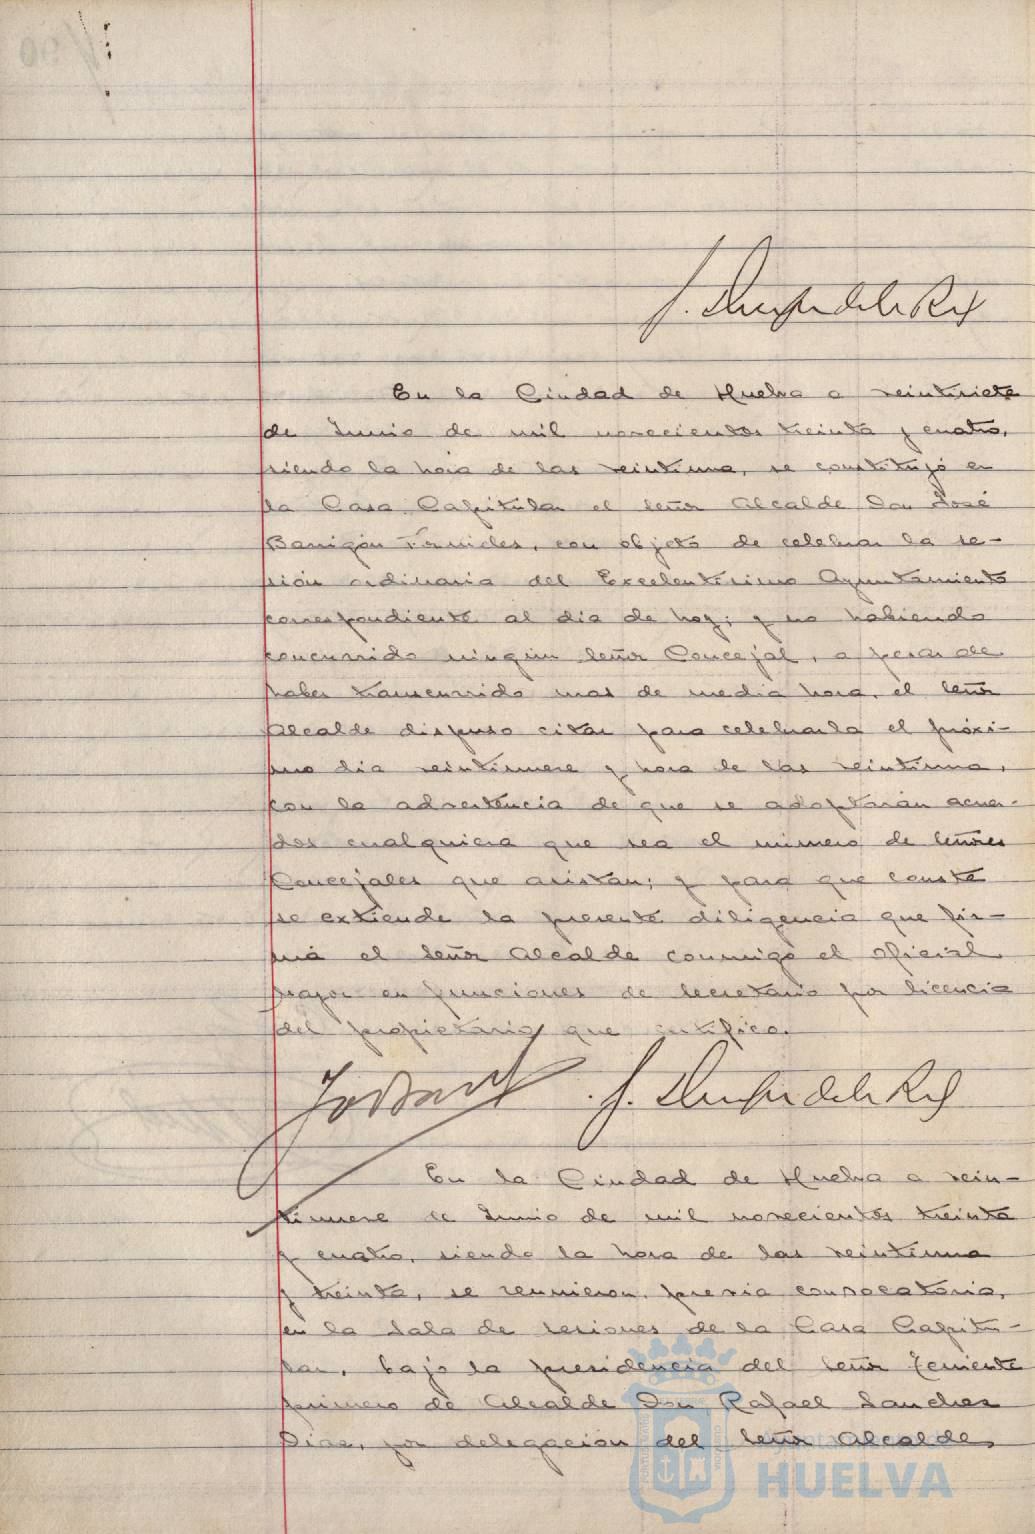 En la Ciudad de Huelva a veintisiete
de Junio de mil novecientos treinta y cuatro,
siendo la hora de las veintiuna, se constituyó en
la Casa Capitular el señor Alcalde Don José
Barrigón Fornieles, con objeto de celebrar la se-
sión ordinaria del Excelentísimo Ayuntamiento
correspondiente al día de hoy; y no habiendo
concurrido ningún señor Concejal, a pesar de
haber transcurrido mas de media hora, el señor
Alcalde dispuso citar para celebrarla el próxi-
mo día veintinueve y hora de las veintiuna,
con la advertencia de que se adoptarán acuer-
dos cualquiera que sea el número de señores
Concejales que asistan; y para que conste
se extiende la presente diligencia que fir-
ma el señor Alcalde conmigo el oficial
mayor en funciones de Secretario por licencia
del propietario, que certifico.
En la Ciudad de Huelva a vein-
tinueve de Junio de mil novecientos treinta
y cuatro, siendo la hora de las veintiuna
y treinta, se reunieron, previa convocatoria,
en la Sala de sesiones de la Casa Capitu-
lar, bajo la presidencia del señor Teniente
primero de Alcalde Don Rafael Sanchez
Díaz, por delegación del señor Alcalde,
Ayuntamiento de
HUELVA